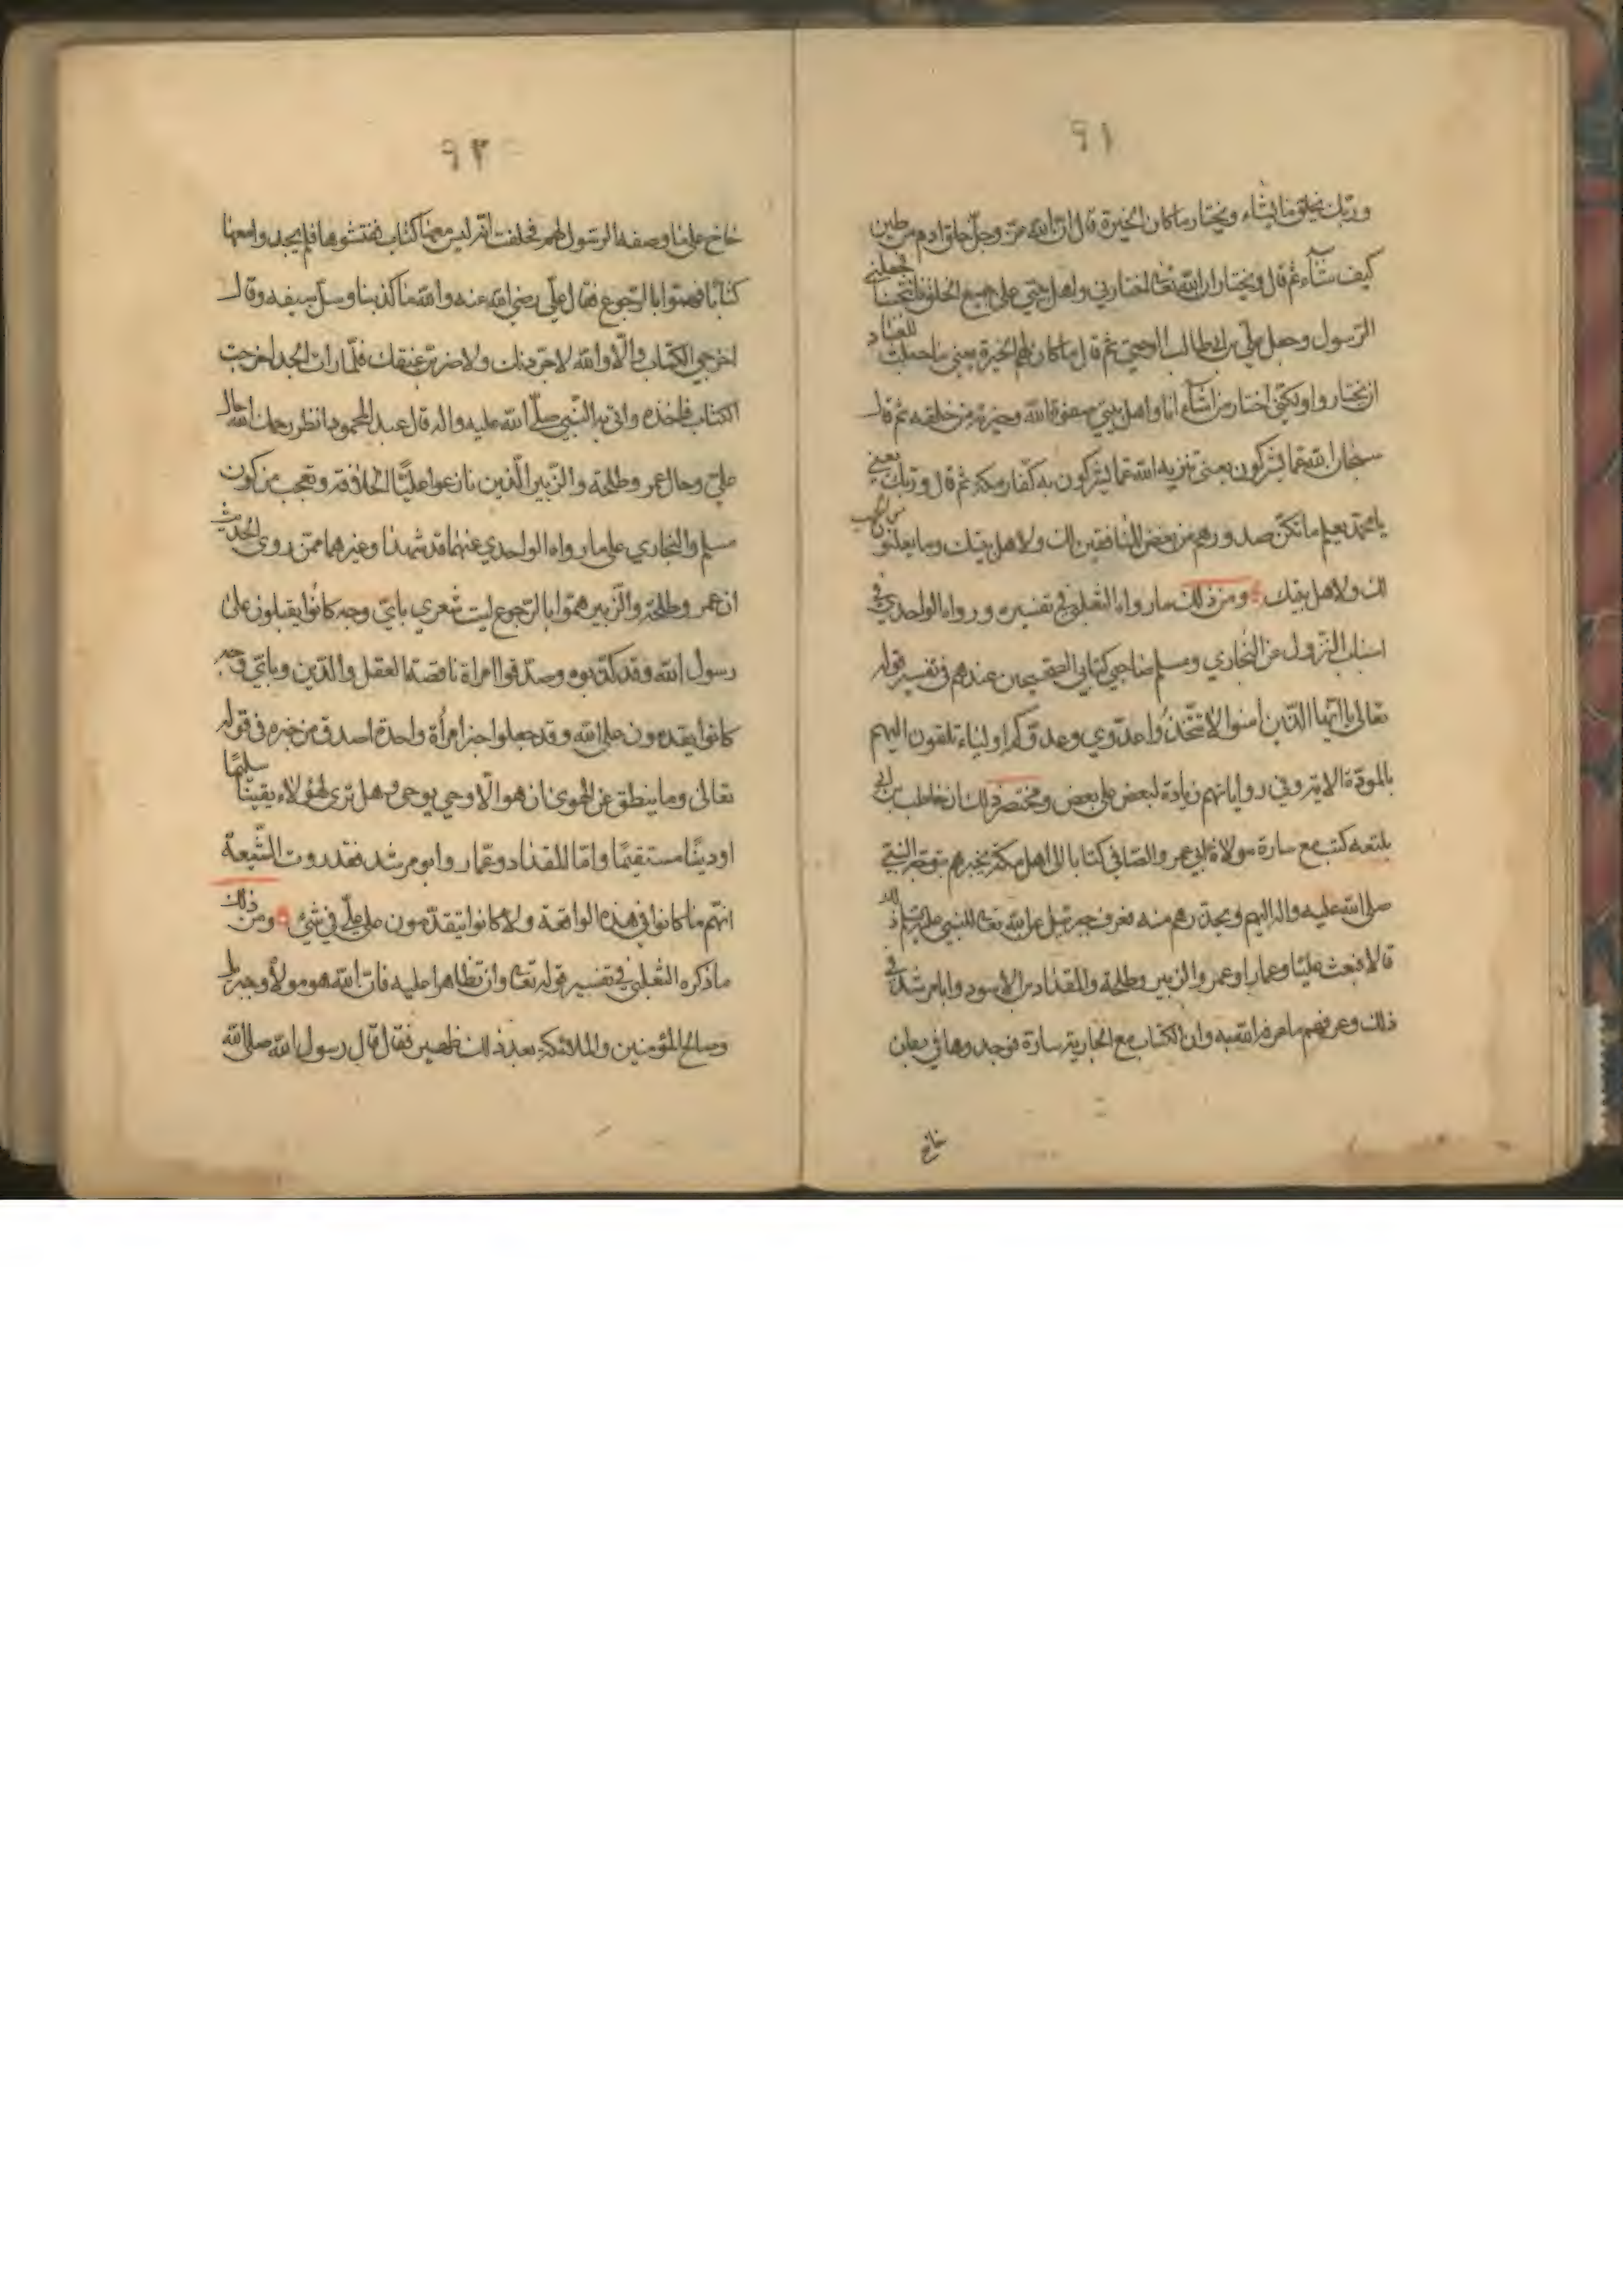 ٩١
وربك يخلق ما يشاء ويختار ما كان الخيرة قال ان الله عز وجل خلق ادم من طين
كيف شاء ثم قال ويختار ان الله تعالى اختارني واهل بيتي على جميع الخلق فانتجبنا فجعلني
الرسول وجعل علي بن ابي طالب الوصي ثم قال ما كان لهم الخيرة يعني ما جعلت للعباد
ان يختاروا ولكني اختار من اشاء فانا واهل بيتي صفوة الله وخيرته من خلقه ثم قال
سبحان الله عما يشركون يعني تنزيه الله عما يشركون به كفار مكة ثم قال وربك يعني
يا محمد يعلم ما تكن صدورهم من بغض المنافقين لك ولاهل بيتك وما يعلنون من الحب
لك ولاهل بيتك ومن ذلك ما رواه الثعلبي في تفسيره ورواه الواحدي في
اسباب النزول عن البخاري ومسلم صاحبي كتابي الصحيحين عندهم في تفسير قوله
تعالى يا ايها الذين امنوا لا تتخذوا عدوي وعدوكم اولياء تلقون اليهم
بالمودة الاية وفي رواياتهم زيادة لبعض على بعض ومختصر ذلك ان حاطب بن ابي
بلتعه كتب مع سارة مولاة ابي عمر والصافي كتابا الى اهل مكة يخبرهم بتوجه النبي
صلى الله عليه واله اليهم ويحذرهم منه فعرف جبرئيل عن الله تعالى للنبي
قالا فبعث عليا وعمارا وعمر والزبير وطلحة والمقداد بن الاسود وابا مرشد في
ذلك وعرفهم ما عرفه الله به وان الكتاب مع الجارية سارة فوجدوها في بطن
خاخ
٩٢
خاخ على ما وصفه الرسول لهم فحلفت انه ليس معها كتاب ففتشوها فلم يجدوا معها
كتابا فهموا بالرجوع فقال علي رضي الله عنه والله ما كذبنا وسل سيفه وقال
اخرجي الكتاب والا والله لاجردنك ولاضربن عنقك فلما رات الجد اخرجت
الكتاب فاخذه واتى به النبي صلى الله عليه واله قال عبد المحمود انظر رحمك الله حال
علي وحال عمر وطلحة والزبير الذين نازعوا عليا الخلافة وتعجب من كون
مسلم والبخاري على ما رواه الواحدي عنهما قد شهدا وغيرهما ممن روى الحديث
ان عمر وطلحة والزبير هموا بالرجوع ليت شعري باي وجه كانوا يقبلون على
رسول الله وقد كذبوه وصدقوا امراة ناقصة العقل والدين وباي وجه
كانوا يقدمون على الله وقد جعلوا خبر امراة واحدة اصدق من خبره في قوله
تعالى وما ينطق عن الهوى ان هو الا وحي يوحى وهل ترى لهؤلاء يقينا سليما
او دينا مستقيما واما المقداد وعمار وابو مرشد فقد روت الشيعة
انهم ما كانوا في هذه الواقعة ولا كانوا يتقدمون على علي في شيء ومن ذلك
ما ذكره الثعلبي في تفسير قوله تعالى وان تظاهرا عليه فان الله هو مولاه وجبريل
وصالح المؤمنين والملائكة بعد ذلك ظهير فقال قال رسول الله صلى الله